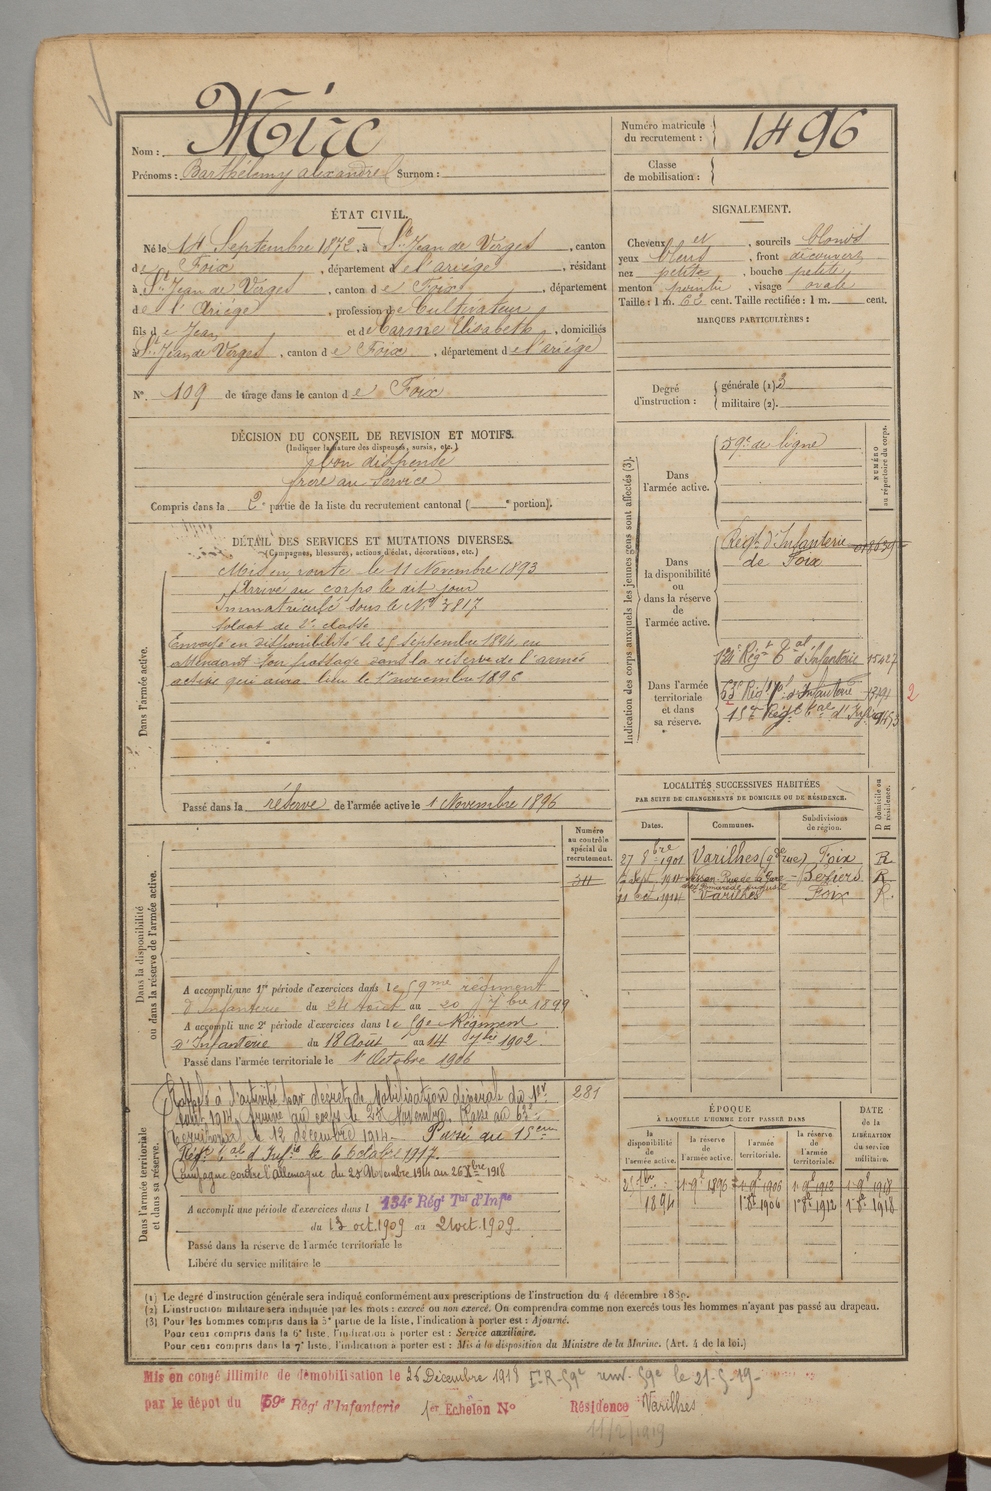 Nom : Mirc
Prénoms : Barthélemy alexandre Surnom :
Numéro matricule du recrutement : 1496
Classe de mobilisation :
ÉTAT CIVIL.
Né le 14 Septembre 1872, à St Jean de Verges, canton
de Foix, département de l'ariège, résidant
à St Jean de Verges, canton de Foix, département
de l'Ariège, profession de Cultivateur
fils de Jean et de Carrié Elisabeth, domiciliés
à St Jean de Verges, canton de Foix, département de l'ariège
N°. 109 de tirage dans le canton de Foix
DÉCISION DU CONSEIL DE REVISION ET MOTIFS.
(Indiquer la nature des dispenses, sursis, etc.)
bon dispensé
frère au service
Compris dans la 2e partie de la liste du recrutement cantonal ( e portion).
SIGNALEMENT.
Cheveux et, sourcils blonds
yeux bleus, front découvert
nez petit, bouche petite
menton pointu, visage ovale
Taille : 1 m. 62 cent. Taille rectifiée : 1 m. cent.
MARQUES PARTICULIÈRES :
Degré d'instruction : générale (1) 3
militaire (2).
DÉTAIL DES SERVICES ET MUTATIONS DIVERSES.
(Campagnes, blessures, actions d'éclat, décorations, etc.)
Dans l'armée active.
Mis en route le 11 Novembre 1893
Arrivé au corps le dit jour
Immatriculé sous le No 3817
Soldat de 2e classe
Envoyé en disponibilité le 25 Septembre 1894 en
attendant son passage dans la réserve de l'armée
active qui aura lieu le 1er novembre 1896
Passé dans la réserve de l'armée active le 1 Novembre 1896
Indication des corps auxquels les jeunes gens sont affectés (3).
NUMÉRO au répertoire du corps.
Dans l'armée active. 59e de ligne
Dans la disponibilité ou dans la réserve de l'armée active.
Régt d'Infanterie de Foix
Dans l'armée territoriale et dans sa réserve.
134e Régt Tal d'Infanterie 15427
63e Régt Tal d'Infanterie 2
15e Régt Tal d'Inf
LOCALITÉS SUCCESSIVES HABITÉES
PAR SUITE DE CHANGEMENTS DE DOMICILE OU DE RÉSIDENCE.
Dates. Communes. Subdivisions de région. D domicile ou R résidence.
27 8bre 1901 Varilhes (gde rue) Foix R
Sept. 1911 Béziers R
11 oct. 1914 Varilhes Foix R.
Dans la disponibilité ou dans la réserve de l'armée active.
Numéro au contrôle spécial du recrutement.
A accompli une 1re période d'exercices dans le 59me régiment
d'Infanterie du 24 Août au 20 7bre 1899
A accompli une 2e période d'exercices dans le 59e Régiment
d'Infanterie du 18 Août au 14 7bre 1902
Passé dans l'armée territoriale le 1 Octobre 1906
Dans l'armée territoriale et dans sa réserve.
281
Rappelé à l'activité par décret de Mobilisation générale du 1er
août 1914, arrivé au corps le 28 Novembre. Passé au 63e
territorial le 12 décembre 1914. Passé au 15ème
Régt Tal d'Infie le 6 Octobre 1917.
Campagne contre l'Allemagne du 28 Novembre 1914 au 26 Xbre 1918
A accompli une période d'exercices dans l 134e Régt Tal d'Infie
du 13 oct. 1909 au 21 oct. 1909.
Passé dans la réserve de l'armée territoriale le
Libéré du service militaire le
ÉPOQUE
À LAQUELLE L'HOMME DOIT PASSER DANS
DATE DE LA LIBÉRATION du service militaire.
la disponibilité de l'armée active. la réserve de l'armée active. l'armée territoriale. la réserve de l'armée territoriale.
25 7bre 1894 1896 1906 1912 1918
1er 8bre 1906 1er 8bre 1912 1er 8bre 1918
(1) Le degré d'instruction générale sera indiqué conformément aux prescriptions de l'instruction du 4 décembre 1889.
(2) L'instruction militaire sera indiquée par les mots : exercé ou non exercé. On comprendra comme non exercés tous les hommes n'ayant pas passé au drapeau.
(3) Pour les hommes compris dans la 5e partie de la liste, l'indication à porter est : Ajourné.
Pour ceux compris dans la 6e liste, l'indication à porter est : Service auxiliaire.
Pour ceux compris dans la 7e liste, l'indication à porter est : Mis à la disposition du Ministre de la Marine. (Art. 4 de la loi.)
Mis en congé illimité de démobilisation le 26 Décembre 1918
par le dépot du 59e Régt d'Infanterie 1er Echelon No Résidence Varilhes
11/2/1919